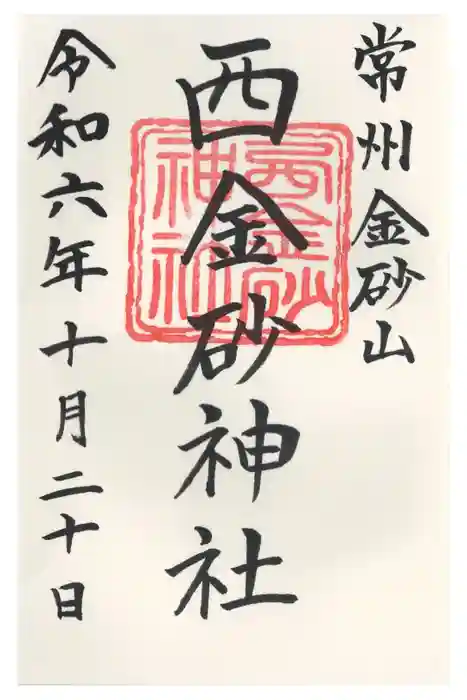 常州金砂山
西金砂神社
西金砂神社
令和六年十月二十日